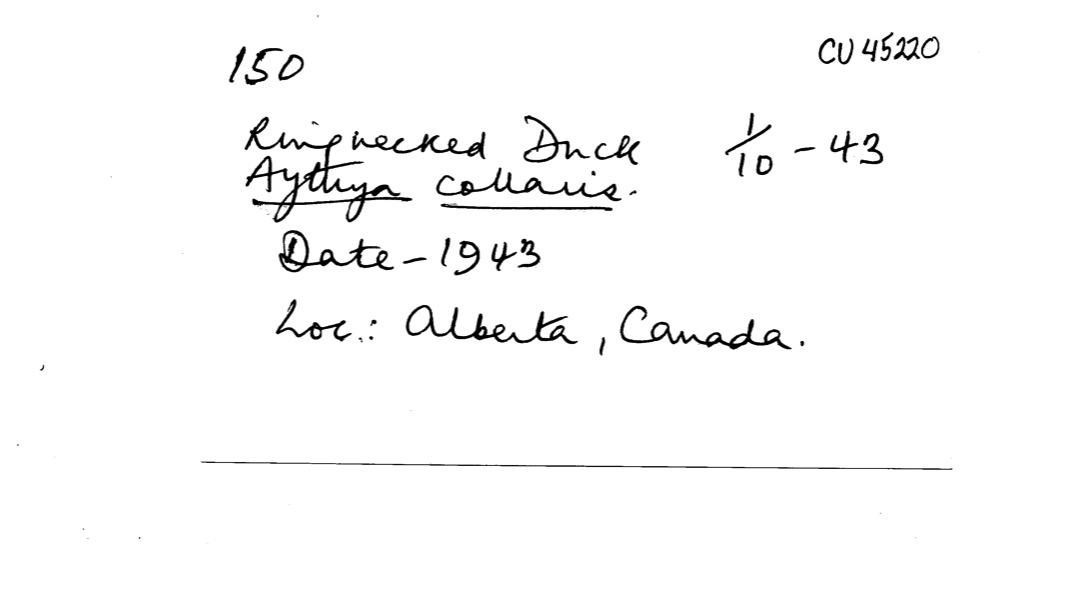 150
CU 45220
Ringnecked Duck 1/10 - 43
Aythya collaris.
Date - 1943
Loc.: Alberta, Canada.